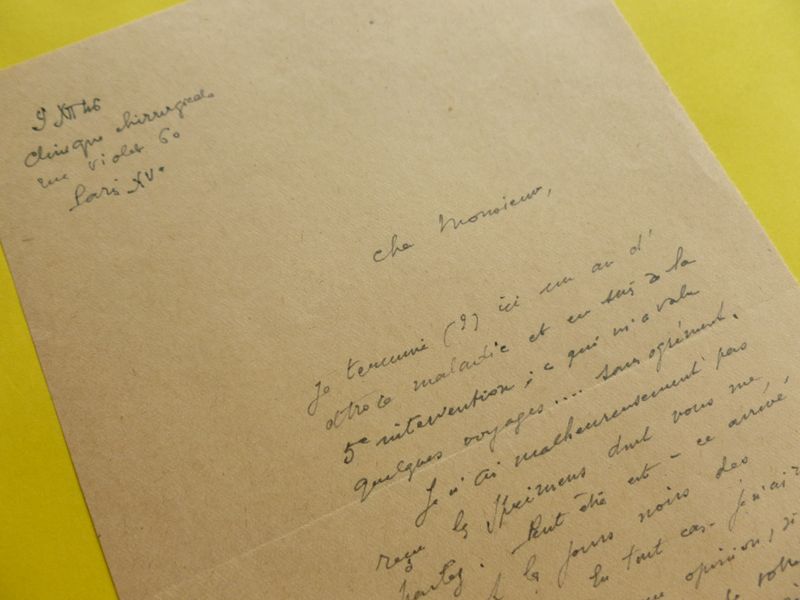 9 XII 46
Clinique chirurgicale
rue Violet 60
Paris XVe
Cher Monsieur,
Je termine (?) ici un an d'
atroce maladie et en suis à la
5e intervention; ce qui m'a valu
quelques voyages.... sans agrément.
Je n'ai malheureusement pas
reçu les spécimens dont vous me
parlez. Peut être est-ce arrivé,
les jours noirs des
En tout cas j'aurai
opinion, si
votre